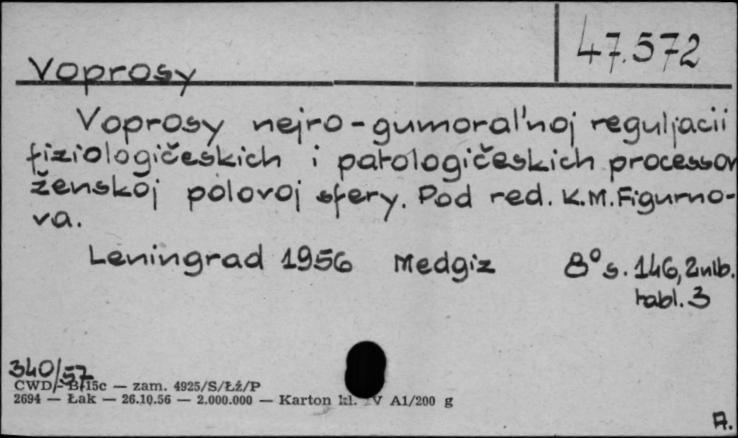 47.572
Voprosy
Voprosy nejro-gumoral'noj reguljacii
fiziologičeskich i patologičeskich processov
ženskoj polovoj sfery. Pod red. K.M.Figurno-
va.
Leningrad 1956 Medgiz 8° s. 146, 2 nlb.
tabl. 3
340/57
CWD/-B/15c — zam. 4925/S/Łż/P
2694 — Łak — 26.10.56 — 2.000.000 — Karton kl. IV A1/200 g
A.